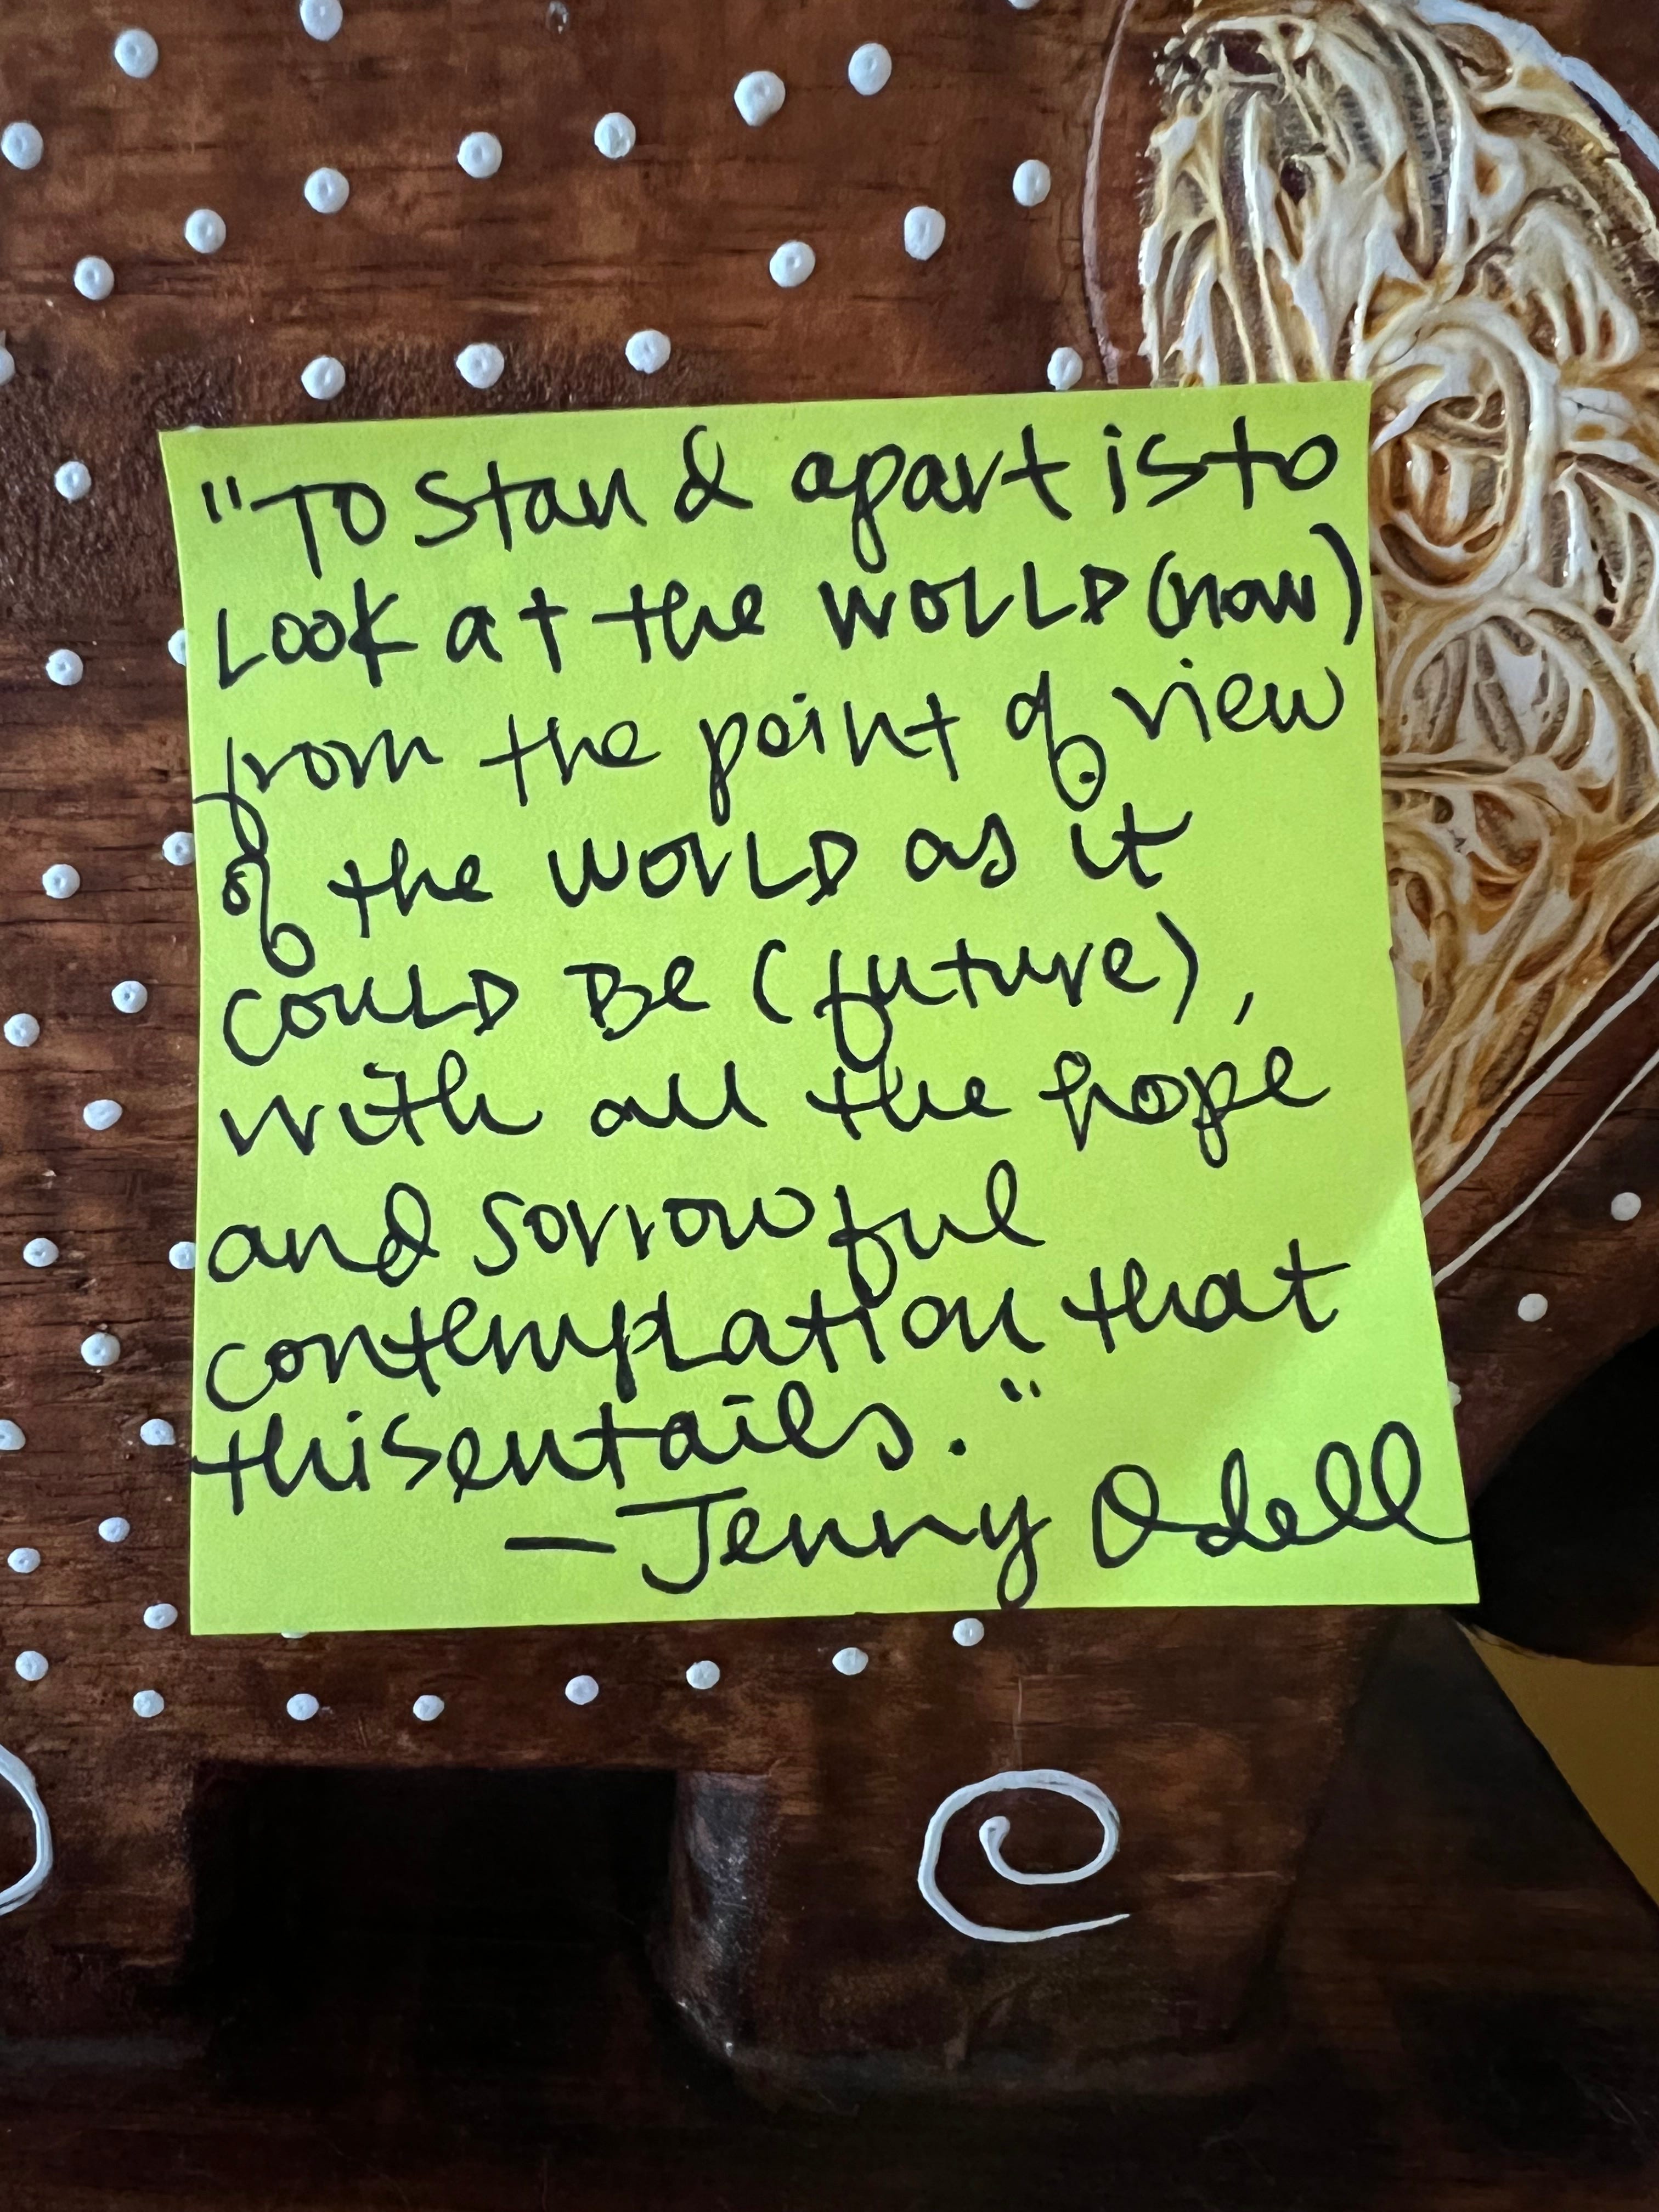 "To stand apart is to
Look at the WORLD (now)
from the point of view
of the WORLD as it
COULD Be (future),
with all the hope
and sorrowful
contempLation that
this entails."
—Jenny Odell